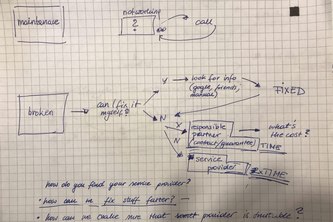 maintenance
not working
?
call
Y
look for info
(google, friends,
manual)
FIXED
broken
can I fix it
myself?
N
Y
responsible
partner
(contract/guarantee)
what's
the cost?
TIME
N
service
provider
€xTIME
how do you find your service provider?
how can we fix stuff faster?
how can we make sure that service provider is suitable?